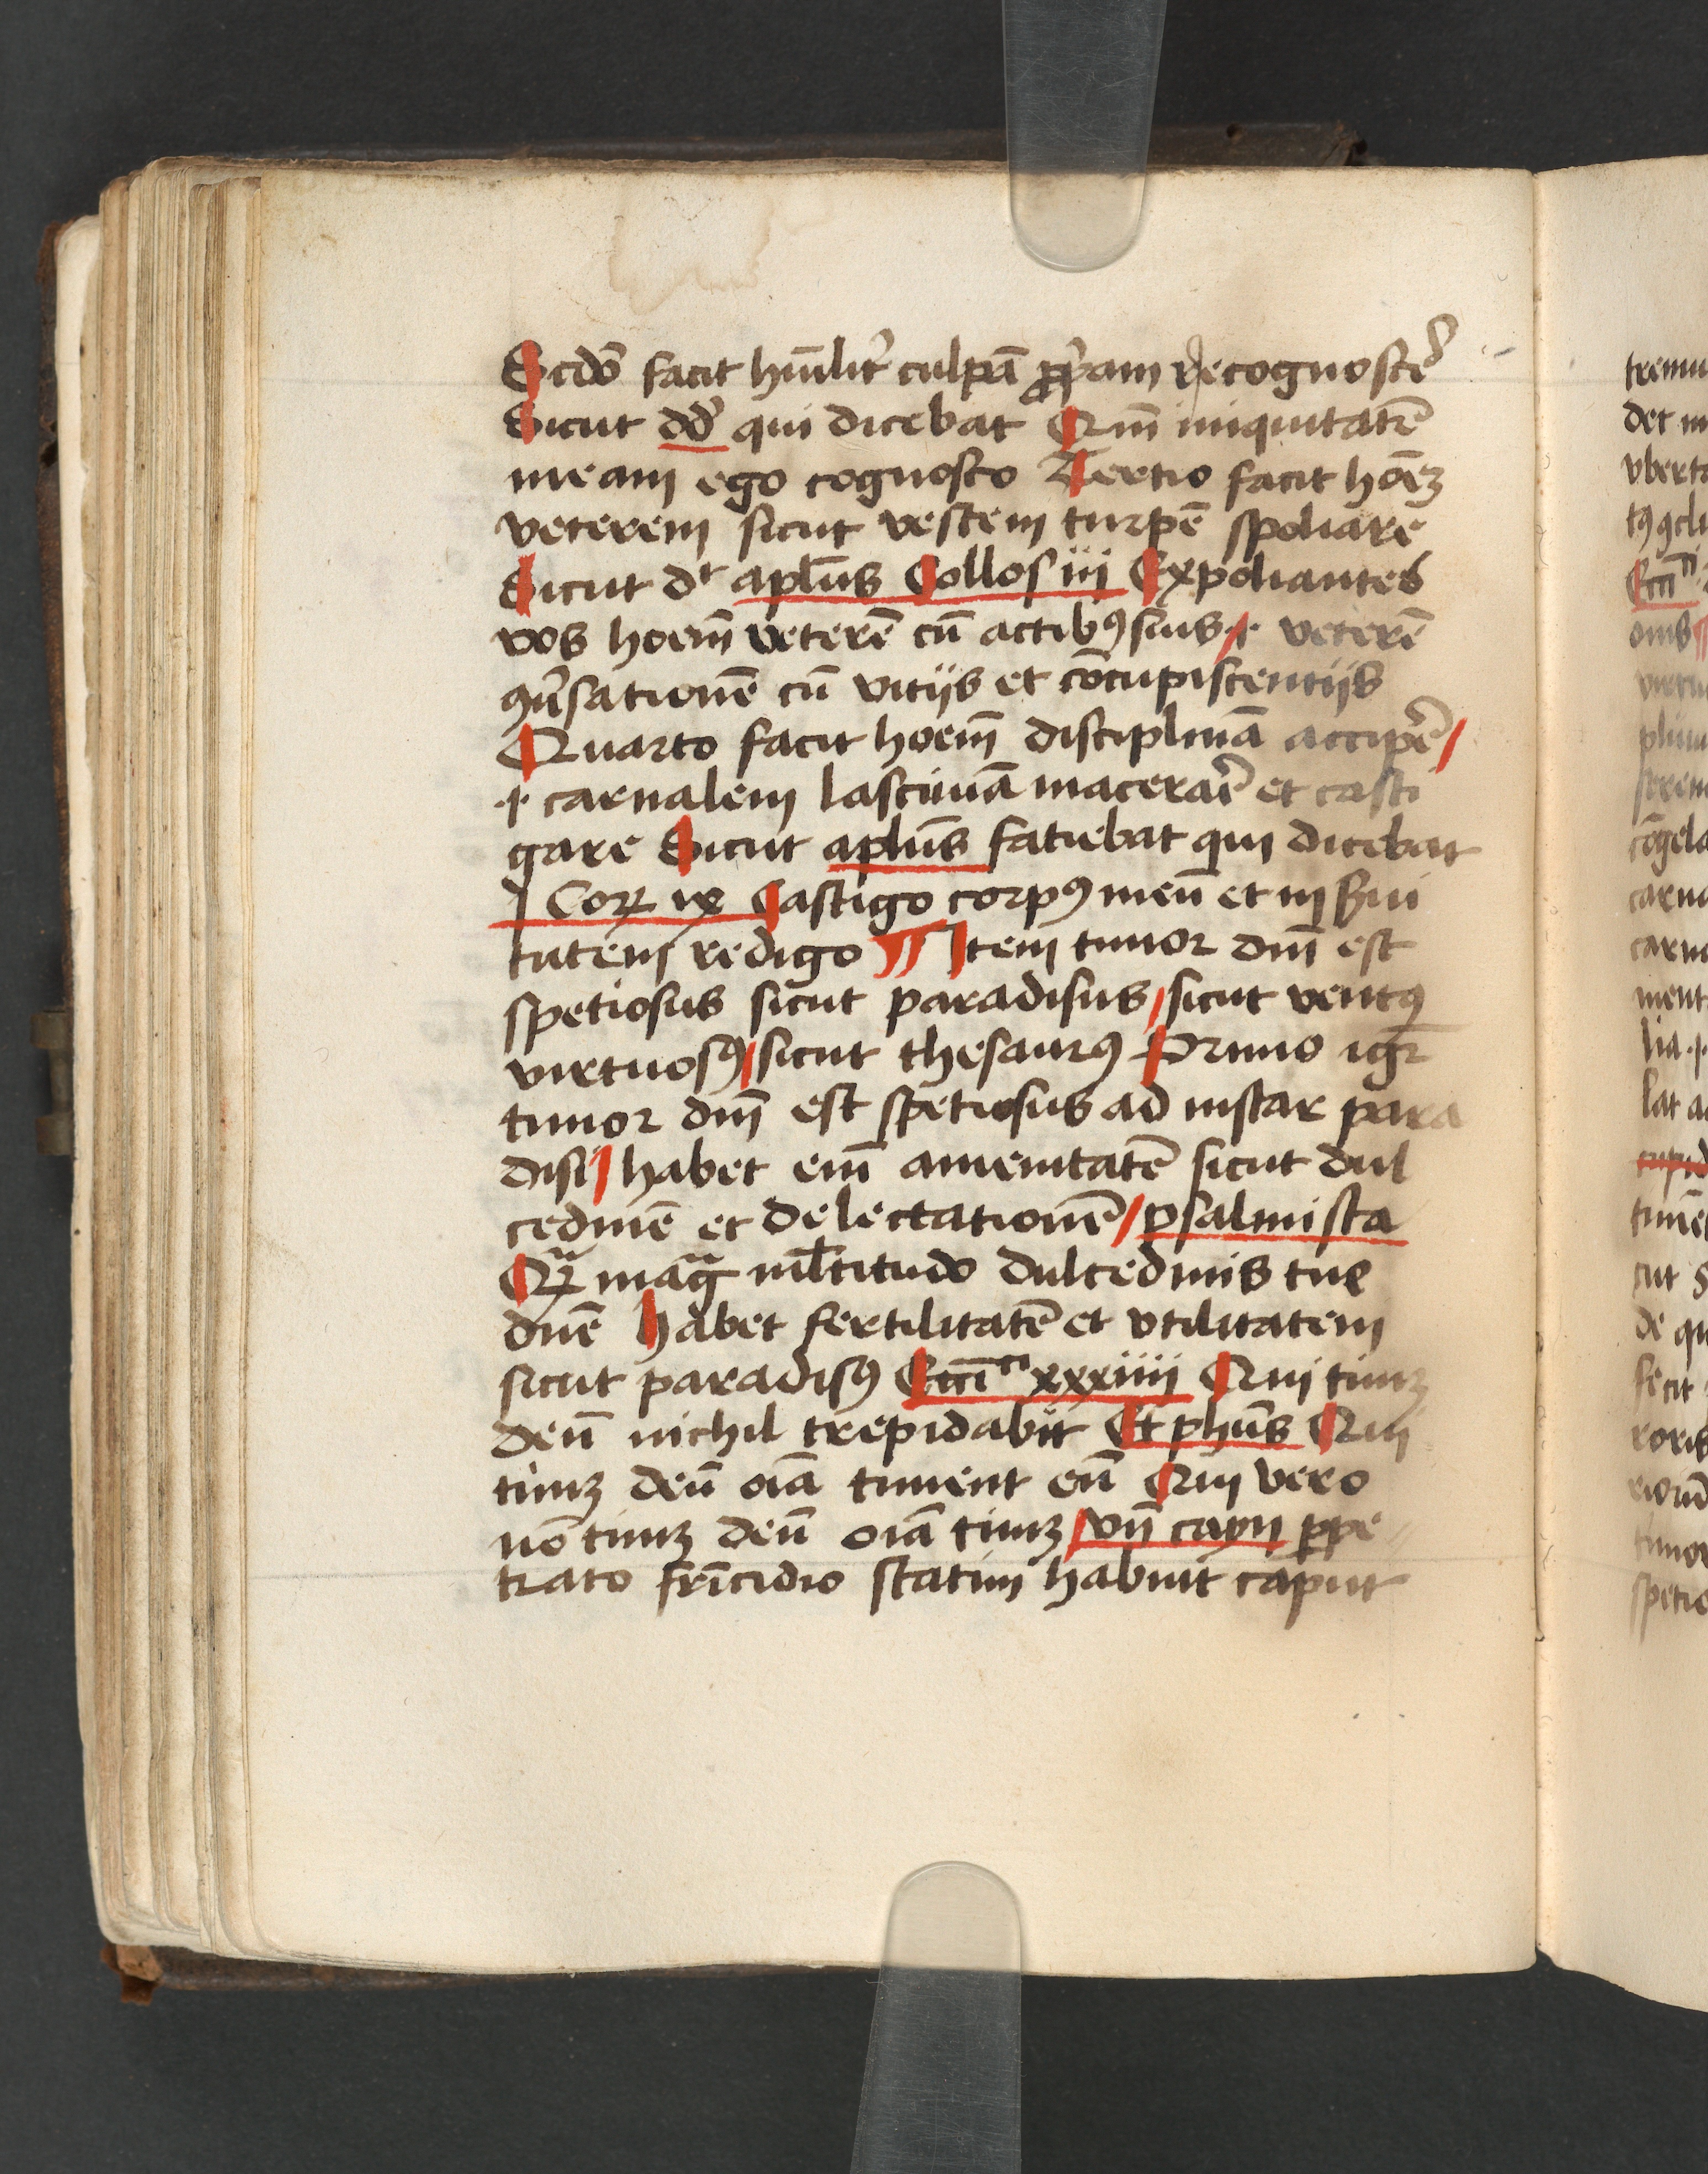 Scdō facit hūilit̉ culpā ꝓp̉am recognoscē
Sicut dd̉ qui dicebat Qm̄ iniquitatē
meam ego cognosco Tertio facit hoēꝫ
veterem sicut vestem turpē spoliare
Sicut dr apl̄us Collos iij Expoliantes
vos hoem̄ veterē cū actibꝰ suis .i. veterē
ꝯūsationē cū vitijs et cōcupiscentijs
Quarto facit hoem̄ disciplinā accip̉e
.i. carnalem lasciuiā macerar̄e et casti
gare Sicut aplūs faciebat qui dicebat
j Coꝝ ix Castigo corpꝰ meū et in s̉ui
tutem redigo Item timor dm̄ est
spetiosus sicut paradisus sicut ventꝰ
virtuosꝰ sicut thesaurꝰ Primo igr̄
timor dm̄ est spetiosus ad instar para
disi habet em̄ amenitatē sicut dul
cedinē et delectationē psalmista
Qꝝ̄ mag̃ ml̄titudo dulcedinis tue
dnē Habet fertilitatē et vtilitatem
sicut paradisꝰ Ecci̅ci xxxiiij Qui timꝫ
deū nichil trepidabit Et phūs Qui
timꝫ deū oīa timent eū Qui vero
nō timꝫ deū oīa timꝫ vn̄ cayn ꝑpe
trato fr̄icidio statim habuit caput
tremu